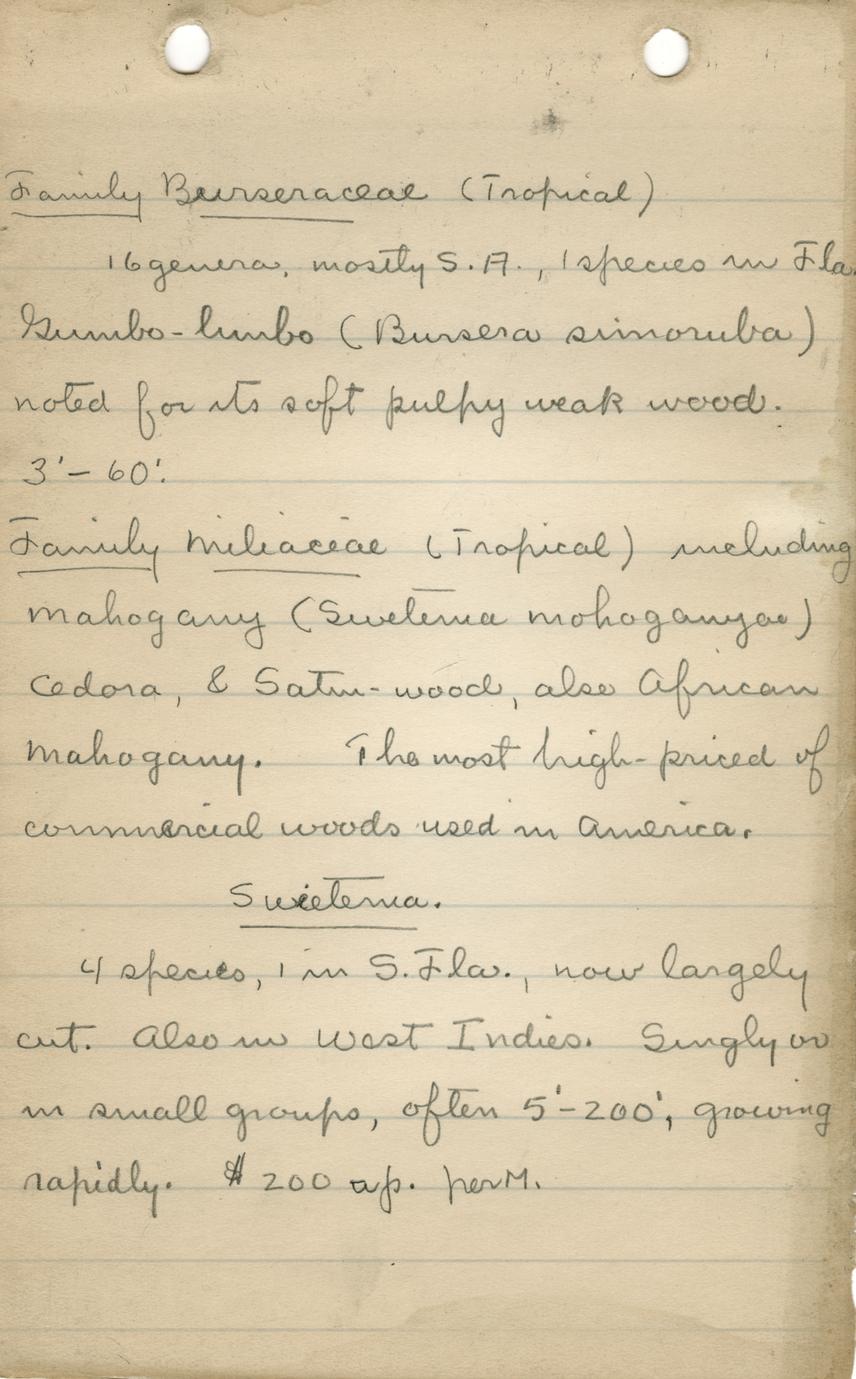 Family Burseraceae (Tropical)
16 genera, mostly S.A., 1 species in Fla.
Gumbo-limbo (Bursera simoruba)
noted for its soft pulpy weak wood.
3'- 60'.
Family Miliaceae (Tropical) including
Mahogany (Swetenia mohoganyae)
Cedora, & Satin-wood, also African
Mahogany. The most high-priced of
commercial woods used in America.
Swietenia.
4 species, 1 in S. Fla., now largely
cut. Also in West Indies. Singly or
in small groups, often 5'-200', growing
rapidly. $200 up. per M.